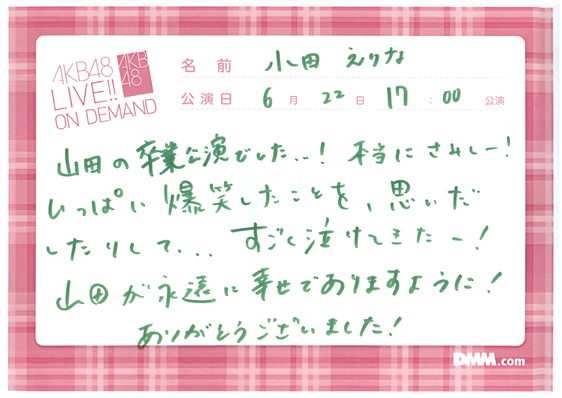 AKB48
LIVE!!
ON DEMAND
AKB
48
名前 小田えりな
公演日 6月22日 17:00 公演
山田の卒業公演でした...! 本当にさみしー!
いっぱい爆笑したことを、思いだ
したりして... すごく泣けてきたー!
山田が永遠に幸せでありますように!
ありがとうございました!
DMM.com